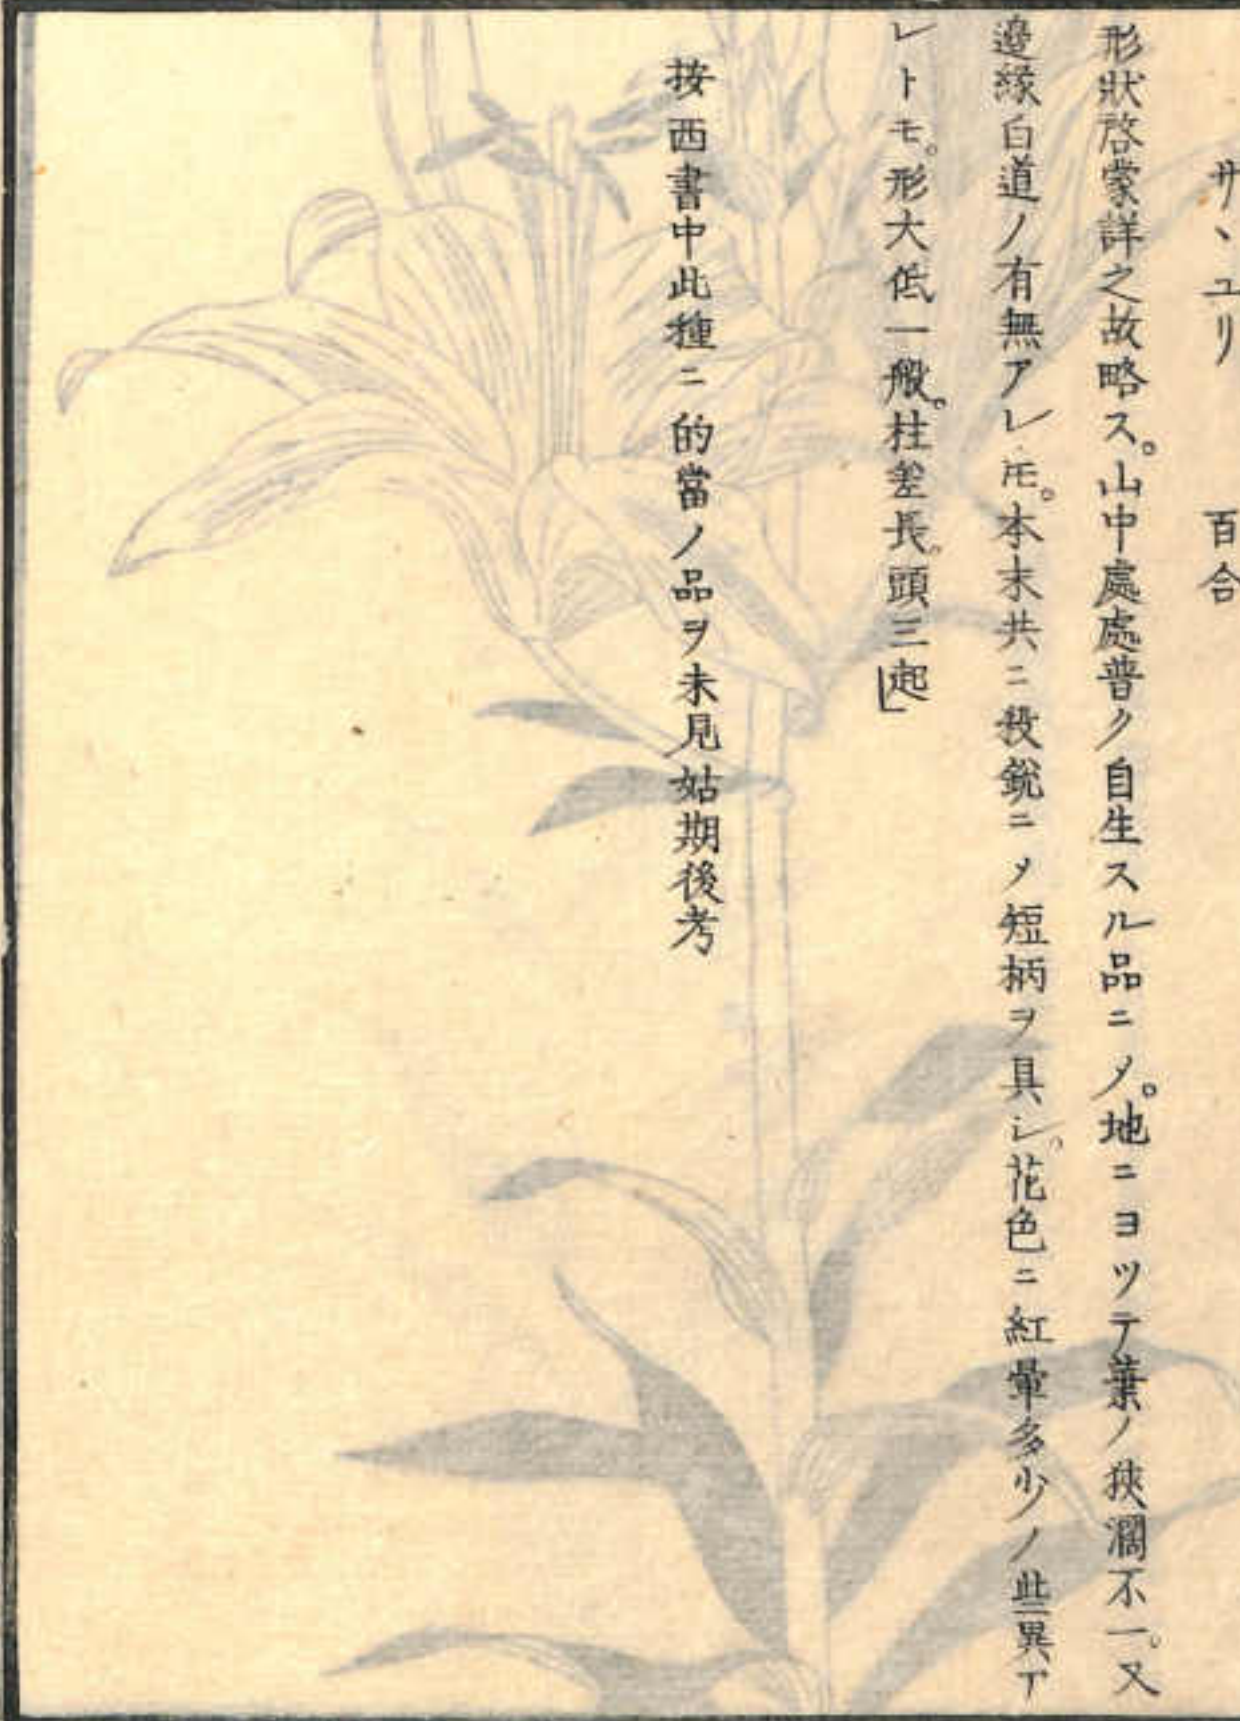 サヽユリ　百合
形狀啓蒙詳之故略ス。山中處處普ク自生スル品ニノ。地ニヨツテ葉ノ狹濶不一。又
邊緣白道ノ有無アレ𪜈。本末共ニ殺銳ニノ短柄ヲ具シ。花色ニ紅暈多少ノ些異ア
レトモ。形大低一般。柱差長。頭三起」
按西書中此種ニ的當ノ品ヲ未見姑期後考